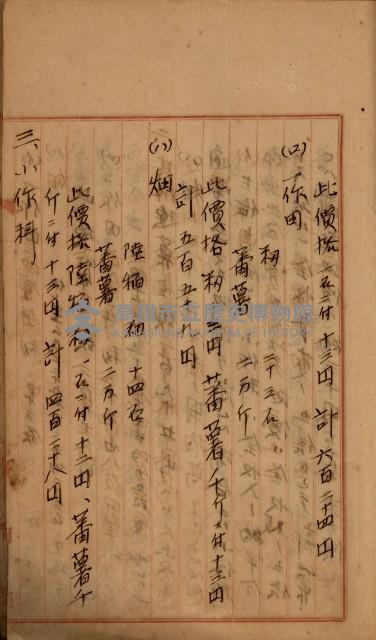 此價格一石ニ付十三円 計 六百二十四円
(ロ) 一作田
籾 二十三石
蕃薯 二万斤
此價格籾 円 蕃薯千斤ニ付十三円
計 五百五十九円
(ハ) 畑
陸稻籾 十四石
蕃薯 二万斤
此價格陸稻籾一石ニ付十二円、蕃薯千
斤ニ付十三円 計 四百二十八円
三、小作料
高雄市立歷史博物館
KAOHSIUNG MUSEUM OF HISTORY